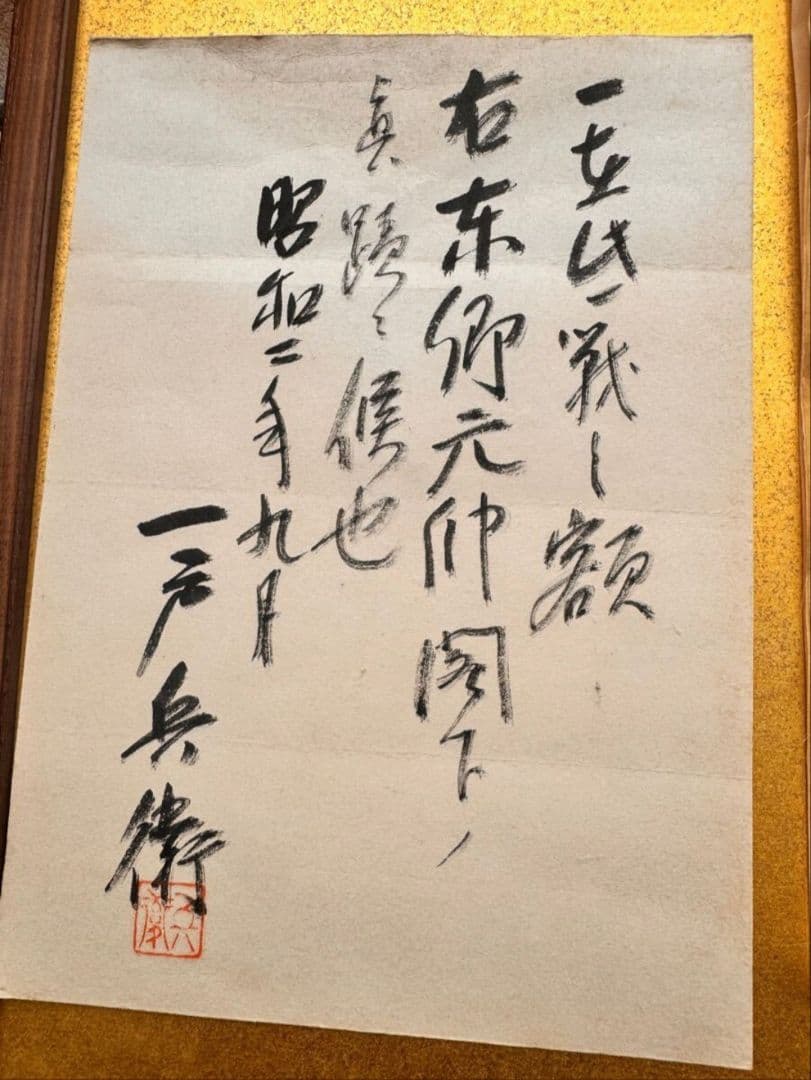 一在此一戦之額
右東郷元帥閣下ノ
真蹟ニ候也
昭和二年九月
一戸兵衛